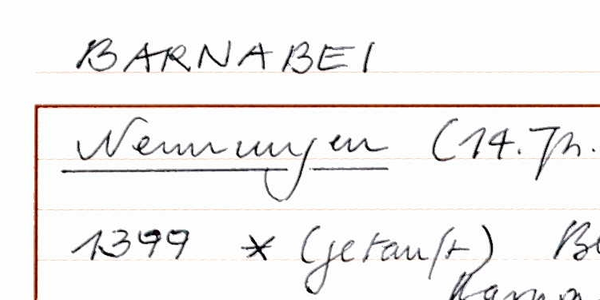 BARNABEI
Nennungen (14. Jh.
1399 * (getauft)